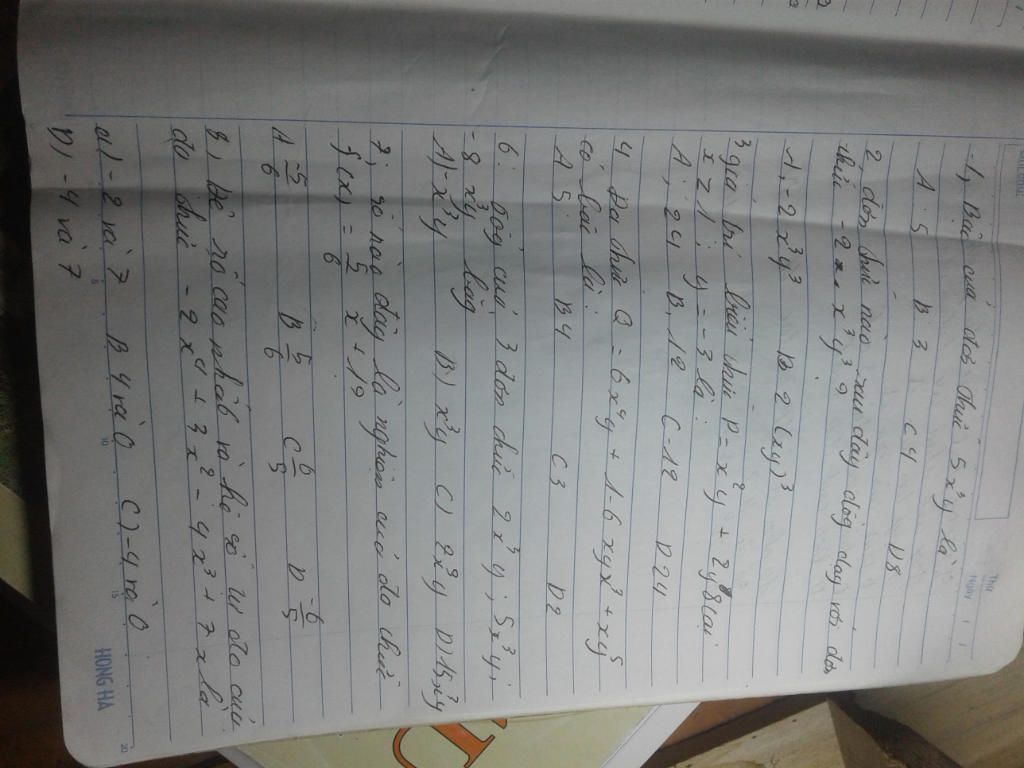 Thứ
Ngày
1, Bậc của đơn thức 5x³y là
A : 5 B 3 C 4 D 8
2, đơn thức nào sau đây đồg dạg với đơn
thức -2 x³y³ ?
A, -2 x³y³ B 2 (xy)³
3 giá trị biểu thức P = x²y + 2y tại
x = 1 ; y = -3 là :
A ; 24 B, 18 C -18 D 24
4 Đa thức Q = 6x⁴y + 1 - 6xyx³ + xy⁵
có bậc là :
A 5 B 4 C 3 D 2
6 : tổg của 3 đơn thức 2x³y ; 5x³y ;
-8 x³y bằg
A) -x³y B) x³y C) 2x³y D) 15x³y
7, số nào đây là nghiệm của đa thức
f(x) = 5/6 x + 1 ?
A -5/6 B 5/6 C 6/5 D -6/5
8, hệ số cao nhất và hệ số tự do của
đa thức -2x⁴ + 3x² - 4x³ + 7x là
a) -2 và 7 B 4 và 0 C) -4 và 0
D) -4 và 7
5 10 15 20
HONG HA